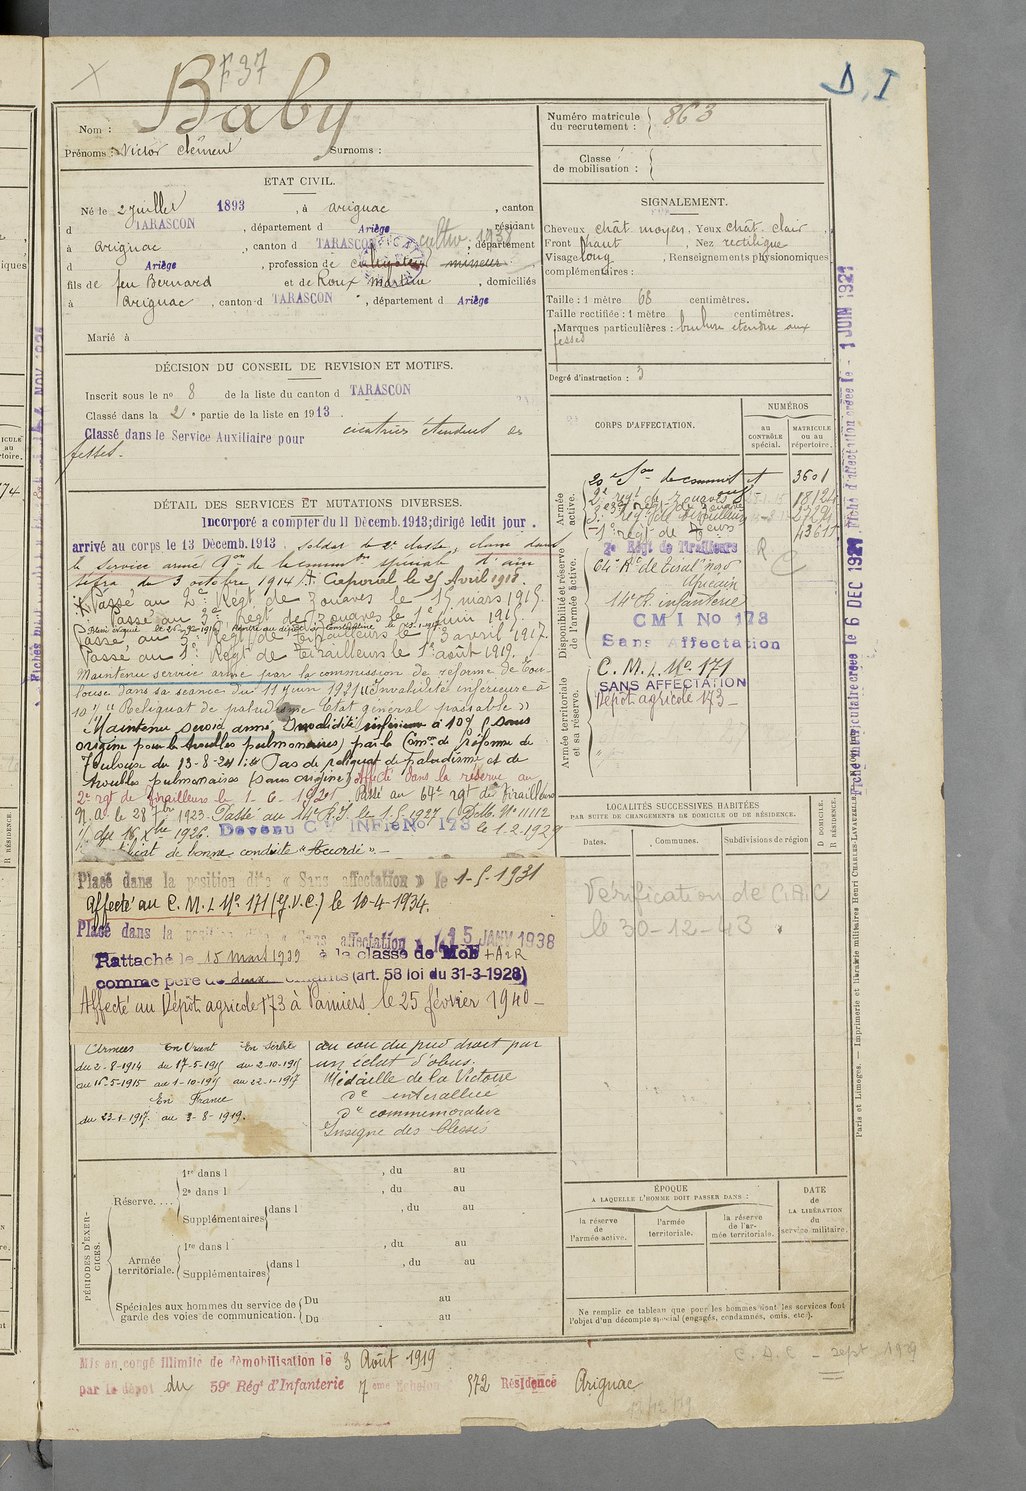 F37
D, I
Baby
Nom :
Prénoms : Victor Clément Surnoms :
Numéro matricule du recrutement : 863
Classe de mobilisation :
ÉTAT CIVIL.
Né le 2 juillet 1893, à Arignac, canton
d TARASCON, département d Ariège, résidant
à Arignac, canton d TARASCON, département
d Ariège, profession de cultiv 1938 mineur
fils de feu Bernard et de Roux Martine, domiciliés
à Arignac, canton d TARASCON, département d Ariège
Marié à
SIGNALEMENT.
Cheveux chât moyen, Yeux chât. clair,
Front haut, Nez rectiligne
Visage long, Renseignements physionomiques
complémentaires :
Taille : 1 mètre 68 centimètres.
Taille rectifiée : 1 mètre centimètres.
Marques particulières : brulure étendue aux
fesses
Degré d'instruction : 3
DÉCISION DU CONSEIL DE REVISION ET MOTIFS.
Inscrit sous le no 8 de la liste du canton d TARASCON
Classé dans la 2e partie de la liste en 1913.
Classé dans le Service Auxiliaire pour cicatrices étendues des
fesses.
CORPS D'AFFECTATION.
NUMÉROS
AU CONTRÔLE spécial.
MATRICULE OU AU répertoire.
DÉTAIL DES SERVICES ET MUTATIONS DIVERSES.
Incorporé a compter du 11 Décemb. 1913; dirigé ledit jour.
arrivé au corps le 13 Décemb. 1913, soldat de 2e classe, classé dans
le service armé don de la comm spéciale d'ain
sefra du 3 octobre 1914. Caporal le 25 Avril 1918.
Passé au 2e Régt de Zouaves le 15 mars 1915.
Passé au 3e Régt de Zouaves le 1er juin 1915.
Passé au 3e Régt de Tirailleurs le 3 avril 1917.
Passé au 1er Régt de Tirailleurs le 1er août 1919.
Maintenu service armé par la commission de réforme de Tou-
louse dans sa séance du 11 juin 1921 "Invalidité inférieure à
10% "Reliquat de paludisme Etat général passable"
Maintenu service armé Invalidité inférieure à 10% (sans
origine pour les troubles pulmonaires) par la Comon de réforme de
Toulouse du 13-8-24 : "Pas de reliquat de paludisme et de
troubles pulmonaires (sans origine) Affecté dans la réserve au
2e rgt de Tirailleurs le 1-6-1921. Passé au 64e rgt de tirailleurs
N.A. le 28 7bre 1923. Passé au 14e R.I. le 1.5.1927 (D.M. No 11112
1/ du 16 Xbre 1926. Devenu CM INFie No 173 le 1-2-1929
Certificat de bonne conduite "Accordé"
Placé dans la position dite « Sans affectation » le 1-5-1931
Affecté au C.M.I. No 171 (G.V.C.) le 10-4-1934.
Placé dans la position dite « Sans affectation » le 15 JANV 1938
Rattaché le 15 mars 1939 à la classe de Mob
comme père de deux enfants (art. 58 loi du 31-3-1928)
Affecté au Dépôt agricole 173 à Pamiers, le 25 février 1940
Armée active.
Disponibilité et réserve de l'armée active.
Armée territoriale et sa réserve.
3601
2e régt de Zouaves 18124
43615
2e Régt de Tirailleurs
64e Rt de tirail. nord
Africain
14e R. infanterie
CMI No 173
Sans Affectation
C.M.I. No 171
SANS AFFECTATION
Dépôt agricole 173
LOCALITÉS SUCCESSIVES HABITÉES
PAR SUITE DE CHANGEMENTS DE DOMICILE OU DE RÉSIDENCE.
Dates. Communes. Subdivisions de région D DOMICILE. R RÉSIDENCE.
Vérification de C.A.C
le 30-12-43
Armées En Orient En Serbie
du 2-8-1914 du 17-5-1915 du 2-10-1915
au 16-5-1915 au 1-10-1915 au 22-1-1917
En France
du 23-1-1917 au 3-8-1919.
au cou du pied droit par
un éclat d'obus.
Médaille de la Victoire
de interalliée
de commémorative
Insigne des blessés
PÉRIODES D'EXERCICES.
Réserve....
1re dans l , du au
2e dans l , du au
Supplémentaires dans l , du au
Armée territoriale.
1re dans l , du au
Supplémentaires dans l , du au
Spéciales aux hommes du service de garde des voies de communication.
Du au
Du au
ÉPOQUE
A LAQUELLE L'HOMME DOIT PASSER DANS :
la réserve de l'armée active.
l'armée territoriale.
la réserve de l'armée territoriale.
DATE DE LA LIBÉRATION du service militaire.
Ne remplir ce tableau que pour les hommes dont les services font
l'objet d'un décompte spécial (engagés, condamnés, omis, etc.).
Mis en congé illimité de démobilisation le 3 Août 1919
par le dépôt du 59e Régt d'Infanterie 7eme Echelon 572 Résidence Arignac
C.A.C - sept 1939
Fiche matriculaire créée le 6 DEC 1921
Fiche d'affectation créée le 1 JUIN 1921
Paris et Limoges. — Imprimerie et librairie militaires Henri CHARLES-LAVAUZELLE.